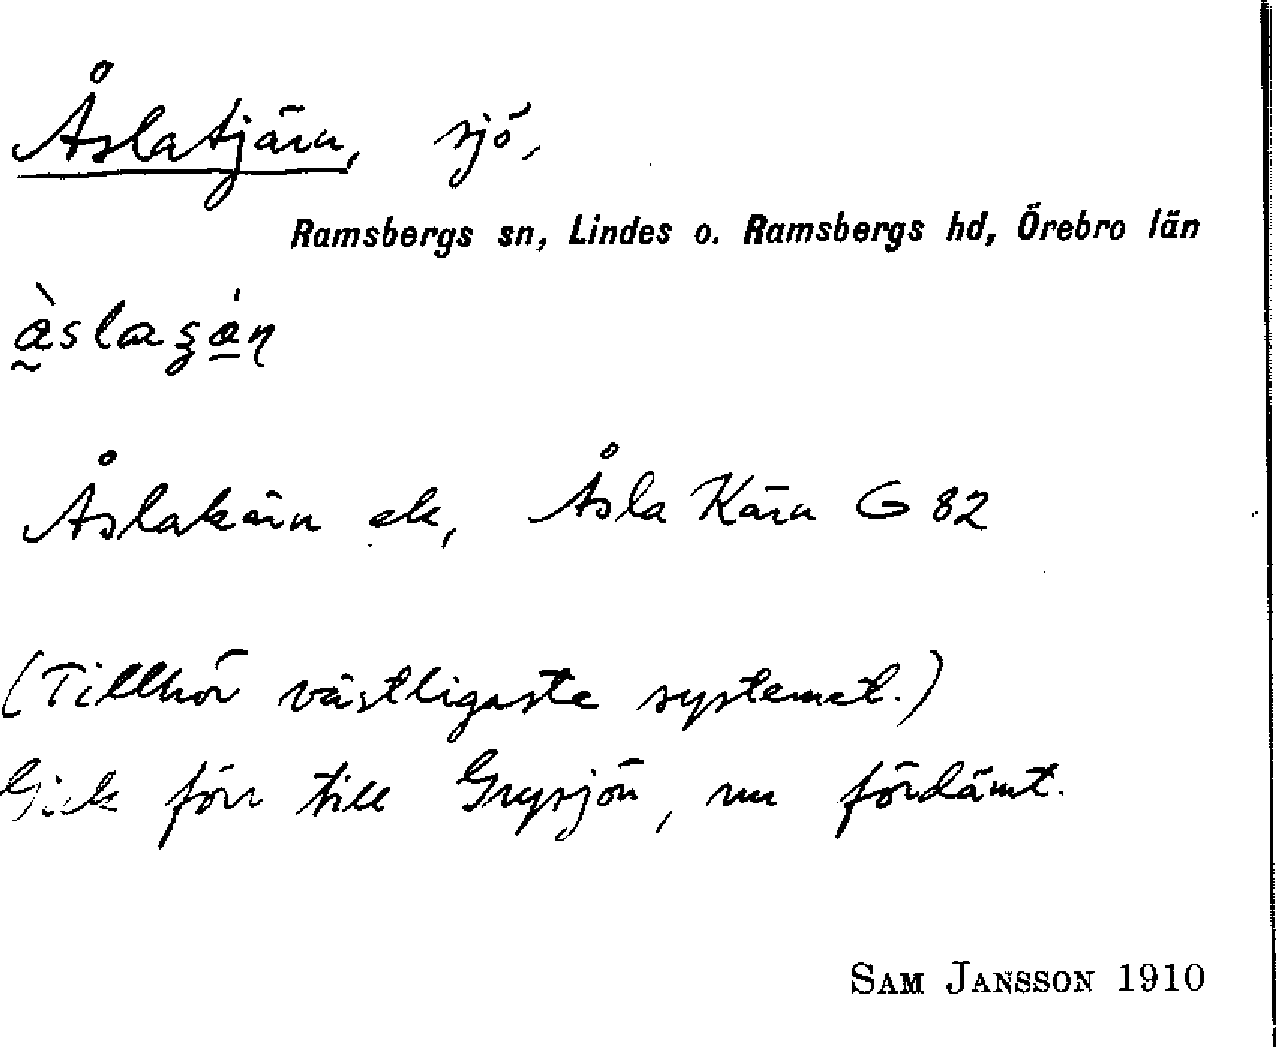 Åslatjärn, sjö,
Ramsbergs sn, Lindes o. Ramsbergs hd, Örebro län
Åslakärn ek, Åsla Kärn G 82
(Tillhör västligaste systemet.)
Gick förr till Grysjön, nu fördämt.
SAM JANSSON 1910